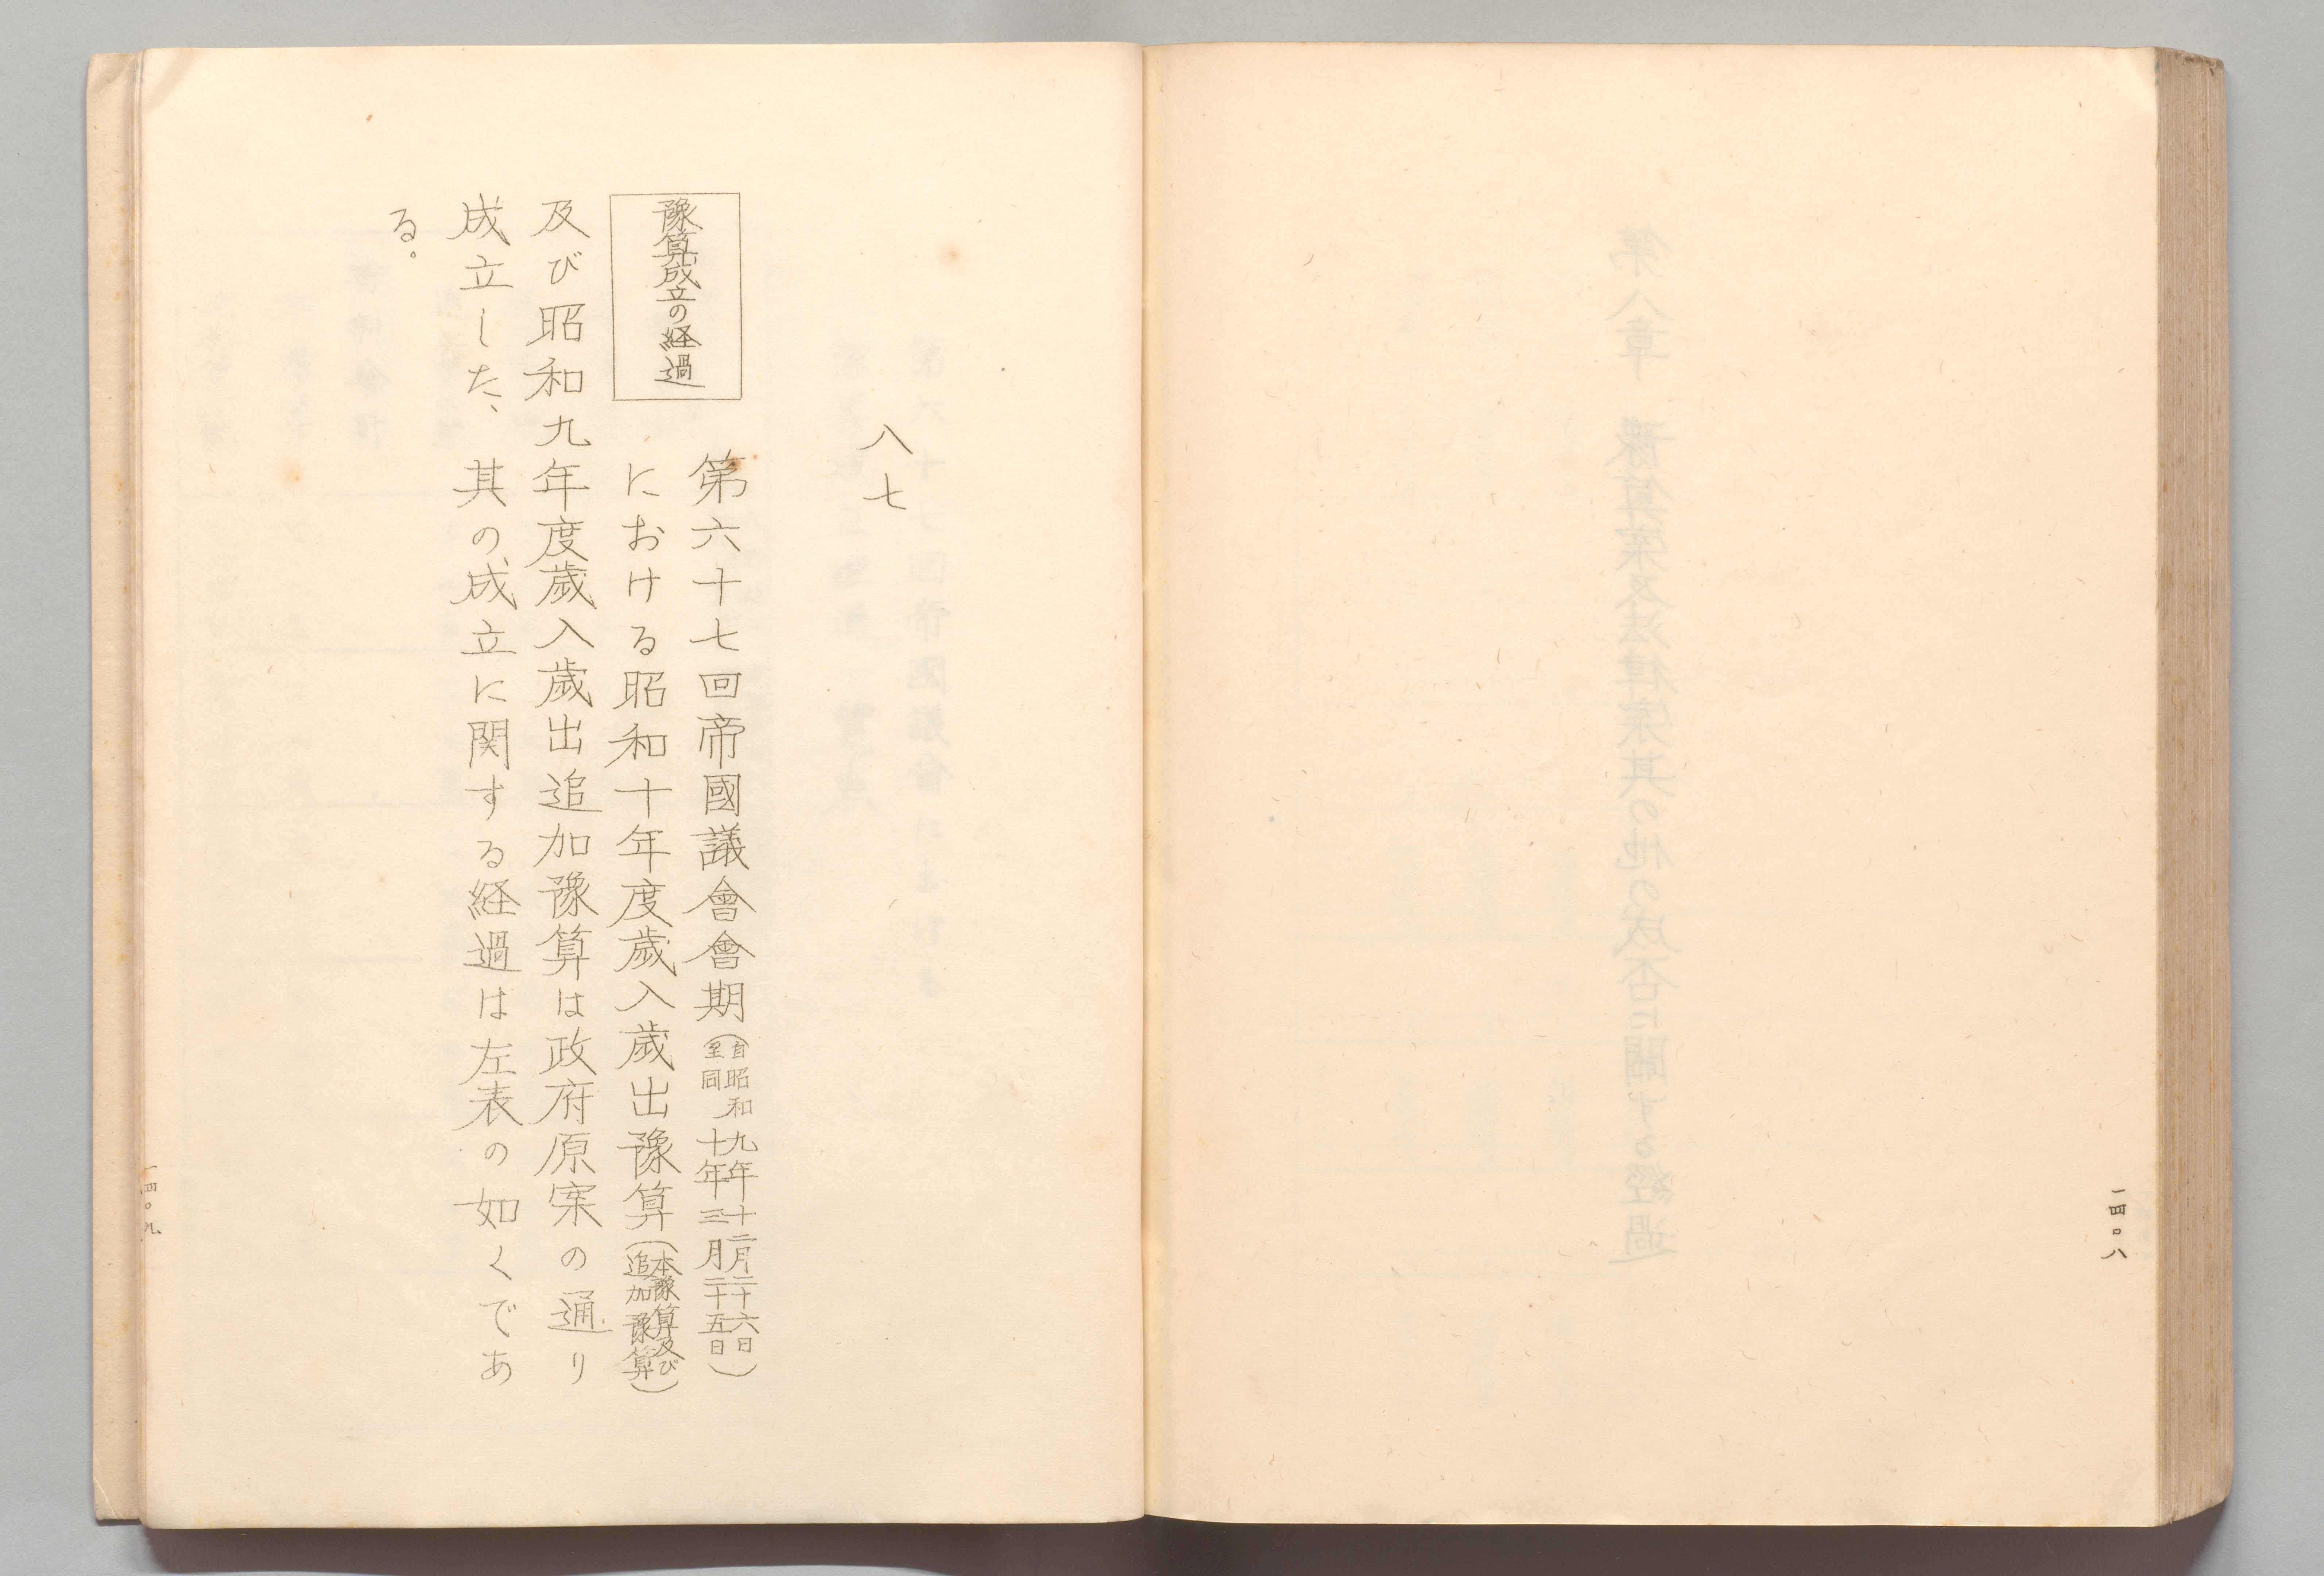 一四〇八
八七
豫算成立の経過
第六十七回帝國議會會期(自昭和九年十二月二十六日
至同十年三月二十五日)
における昭和十年度歳入歳出豫算(本豫算及び
追加豫算)
及び昭和九年度歳入歳出追加豫算は政府原案の通り
成立した、其の成立に関する経過は左表の如くであ
る。
一四〇九